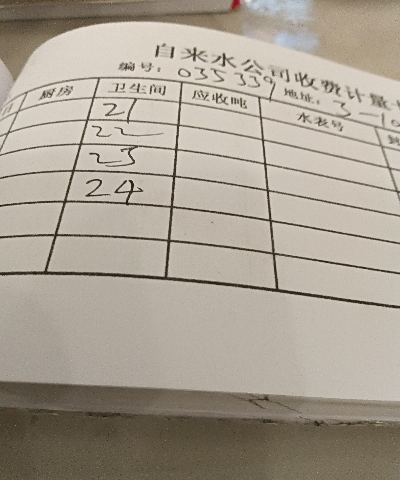 自来水公司收费计量
编号: 035339 地址: 3-10
厨房 卫生间 应收吨 水表号
21
22
23
24